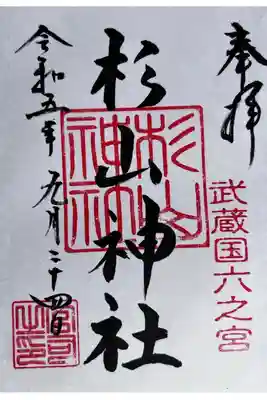 奉拝
武蔵国六之宮
杉山神社
杉山
神社
令和五年九月二十四日